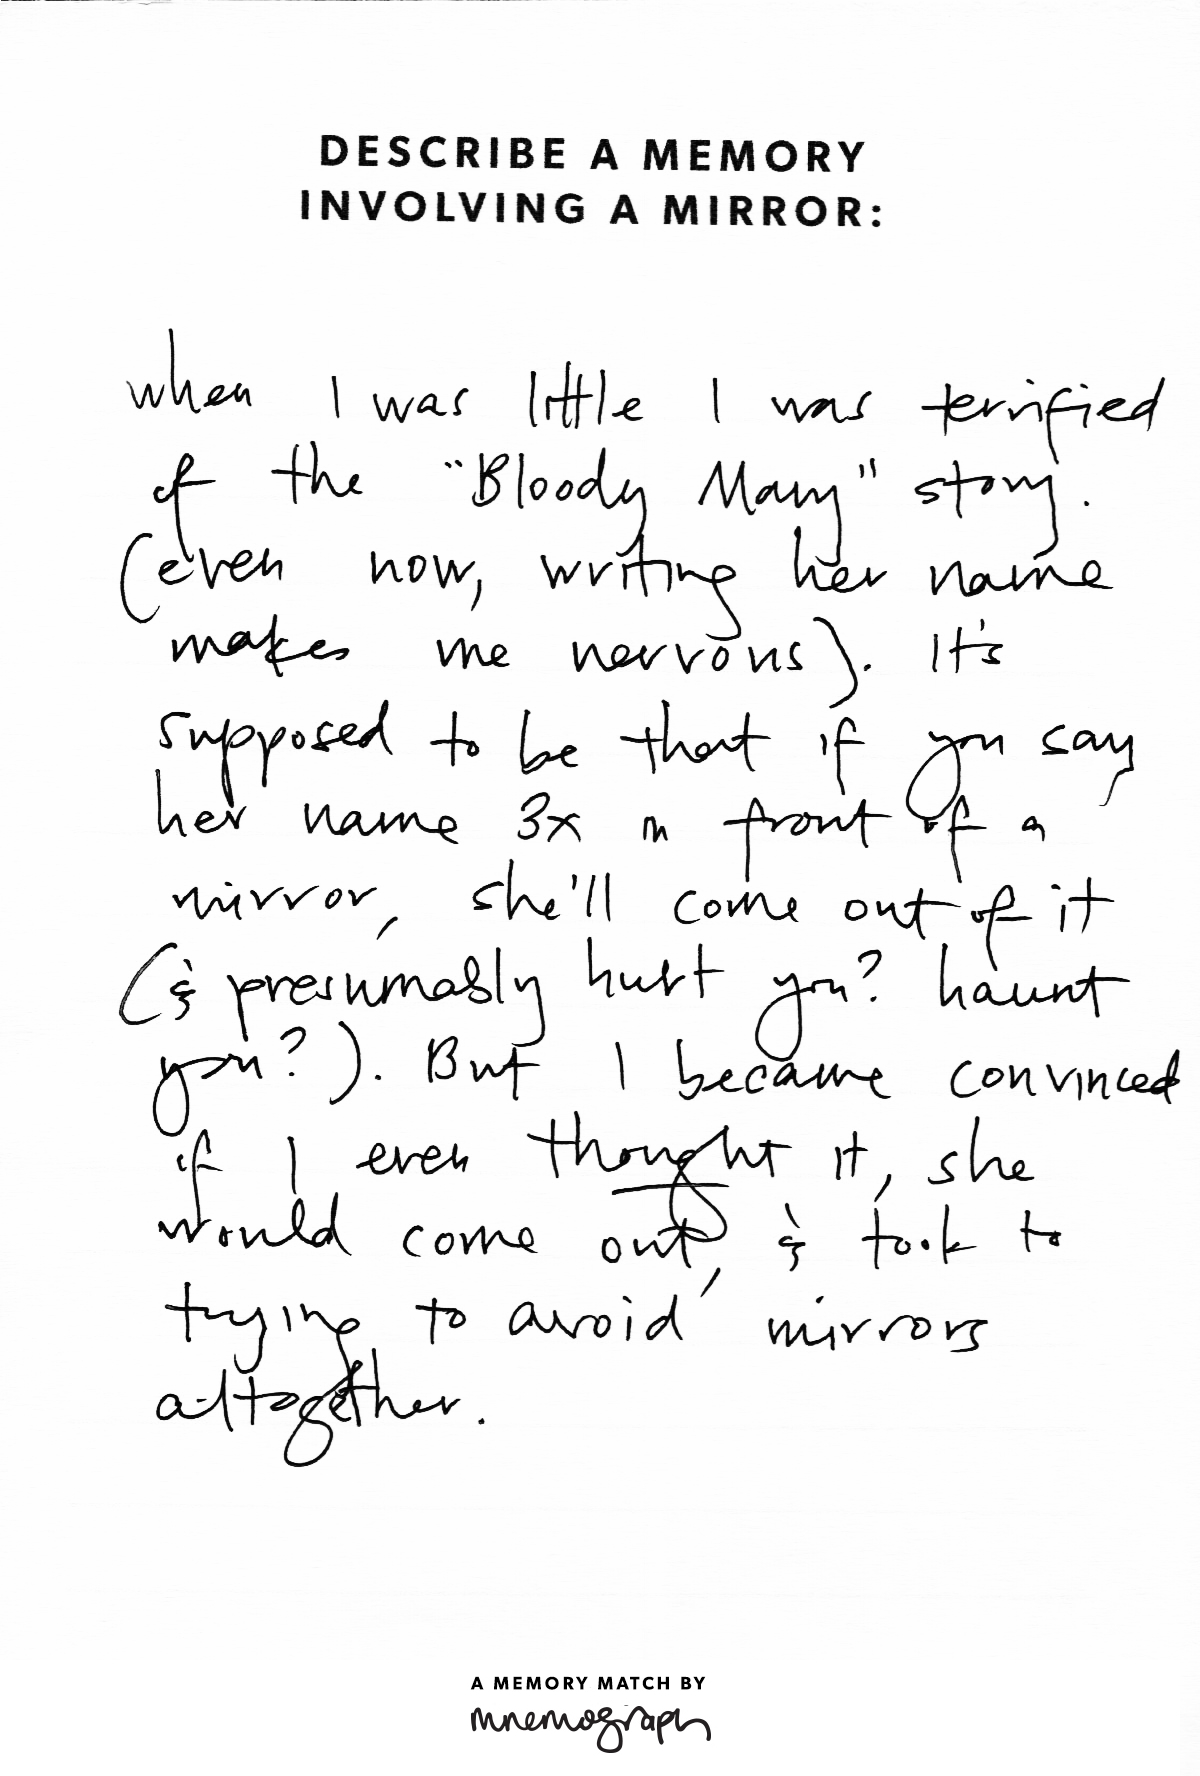 DESCRIBE A MEMORY
INVOLVING A MIRROR:
when I was little I was terrified
of the "Bloody Mary" story.
(even now, writing her name
makes me nervous). It's
supposed to be that if you say
her name 3x in front of a
mirror, she'll come out of it
(& presumably hurt you? haunt
you?). But I became convinced
if I even thought it, she
would come out, & took to
trying to avoid mirrors
altogether.
A MEMORY MATCH BY
mnemograph